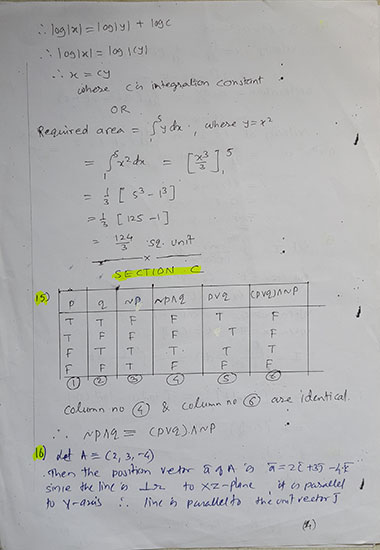 ∴ log|x| = log|y| + log c
∴ log|x| = log|cy|
∴ x = cy
where c is integration constant
OR
Required area = ∫₁⁵ y dx, where y = x²
= ∫₁⁵ x² dx = [x³/3]₁⁵
= 1/3 [5³ - 1³]
= 1/3 [125 - 1]
= 124/3 sq. unit
x
SECTION C
15) p q ~p ~p∧q p∨q (p∨q)∧~p
T T F F T F
T F F F T F
F T T T T T
F F T F F F
① ② ③ ④ ⑤ ⑥
column no ④ & column no ⑥ are identical.
∴ ~p∧q ≡ (p∨q)∧~p
16) let A ≡ (2, 3, -4)
Then the position vector a̅ of A is a̅ = 2i̅ + 3j̅ - 4k̅
since the line is ⊥r to XZ-plane, it is parallel
to Y-axis ∴ line is parallel to the unit vector j̅